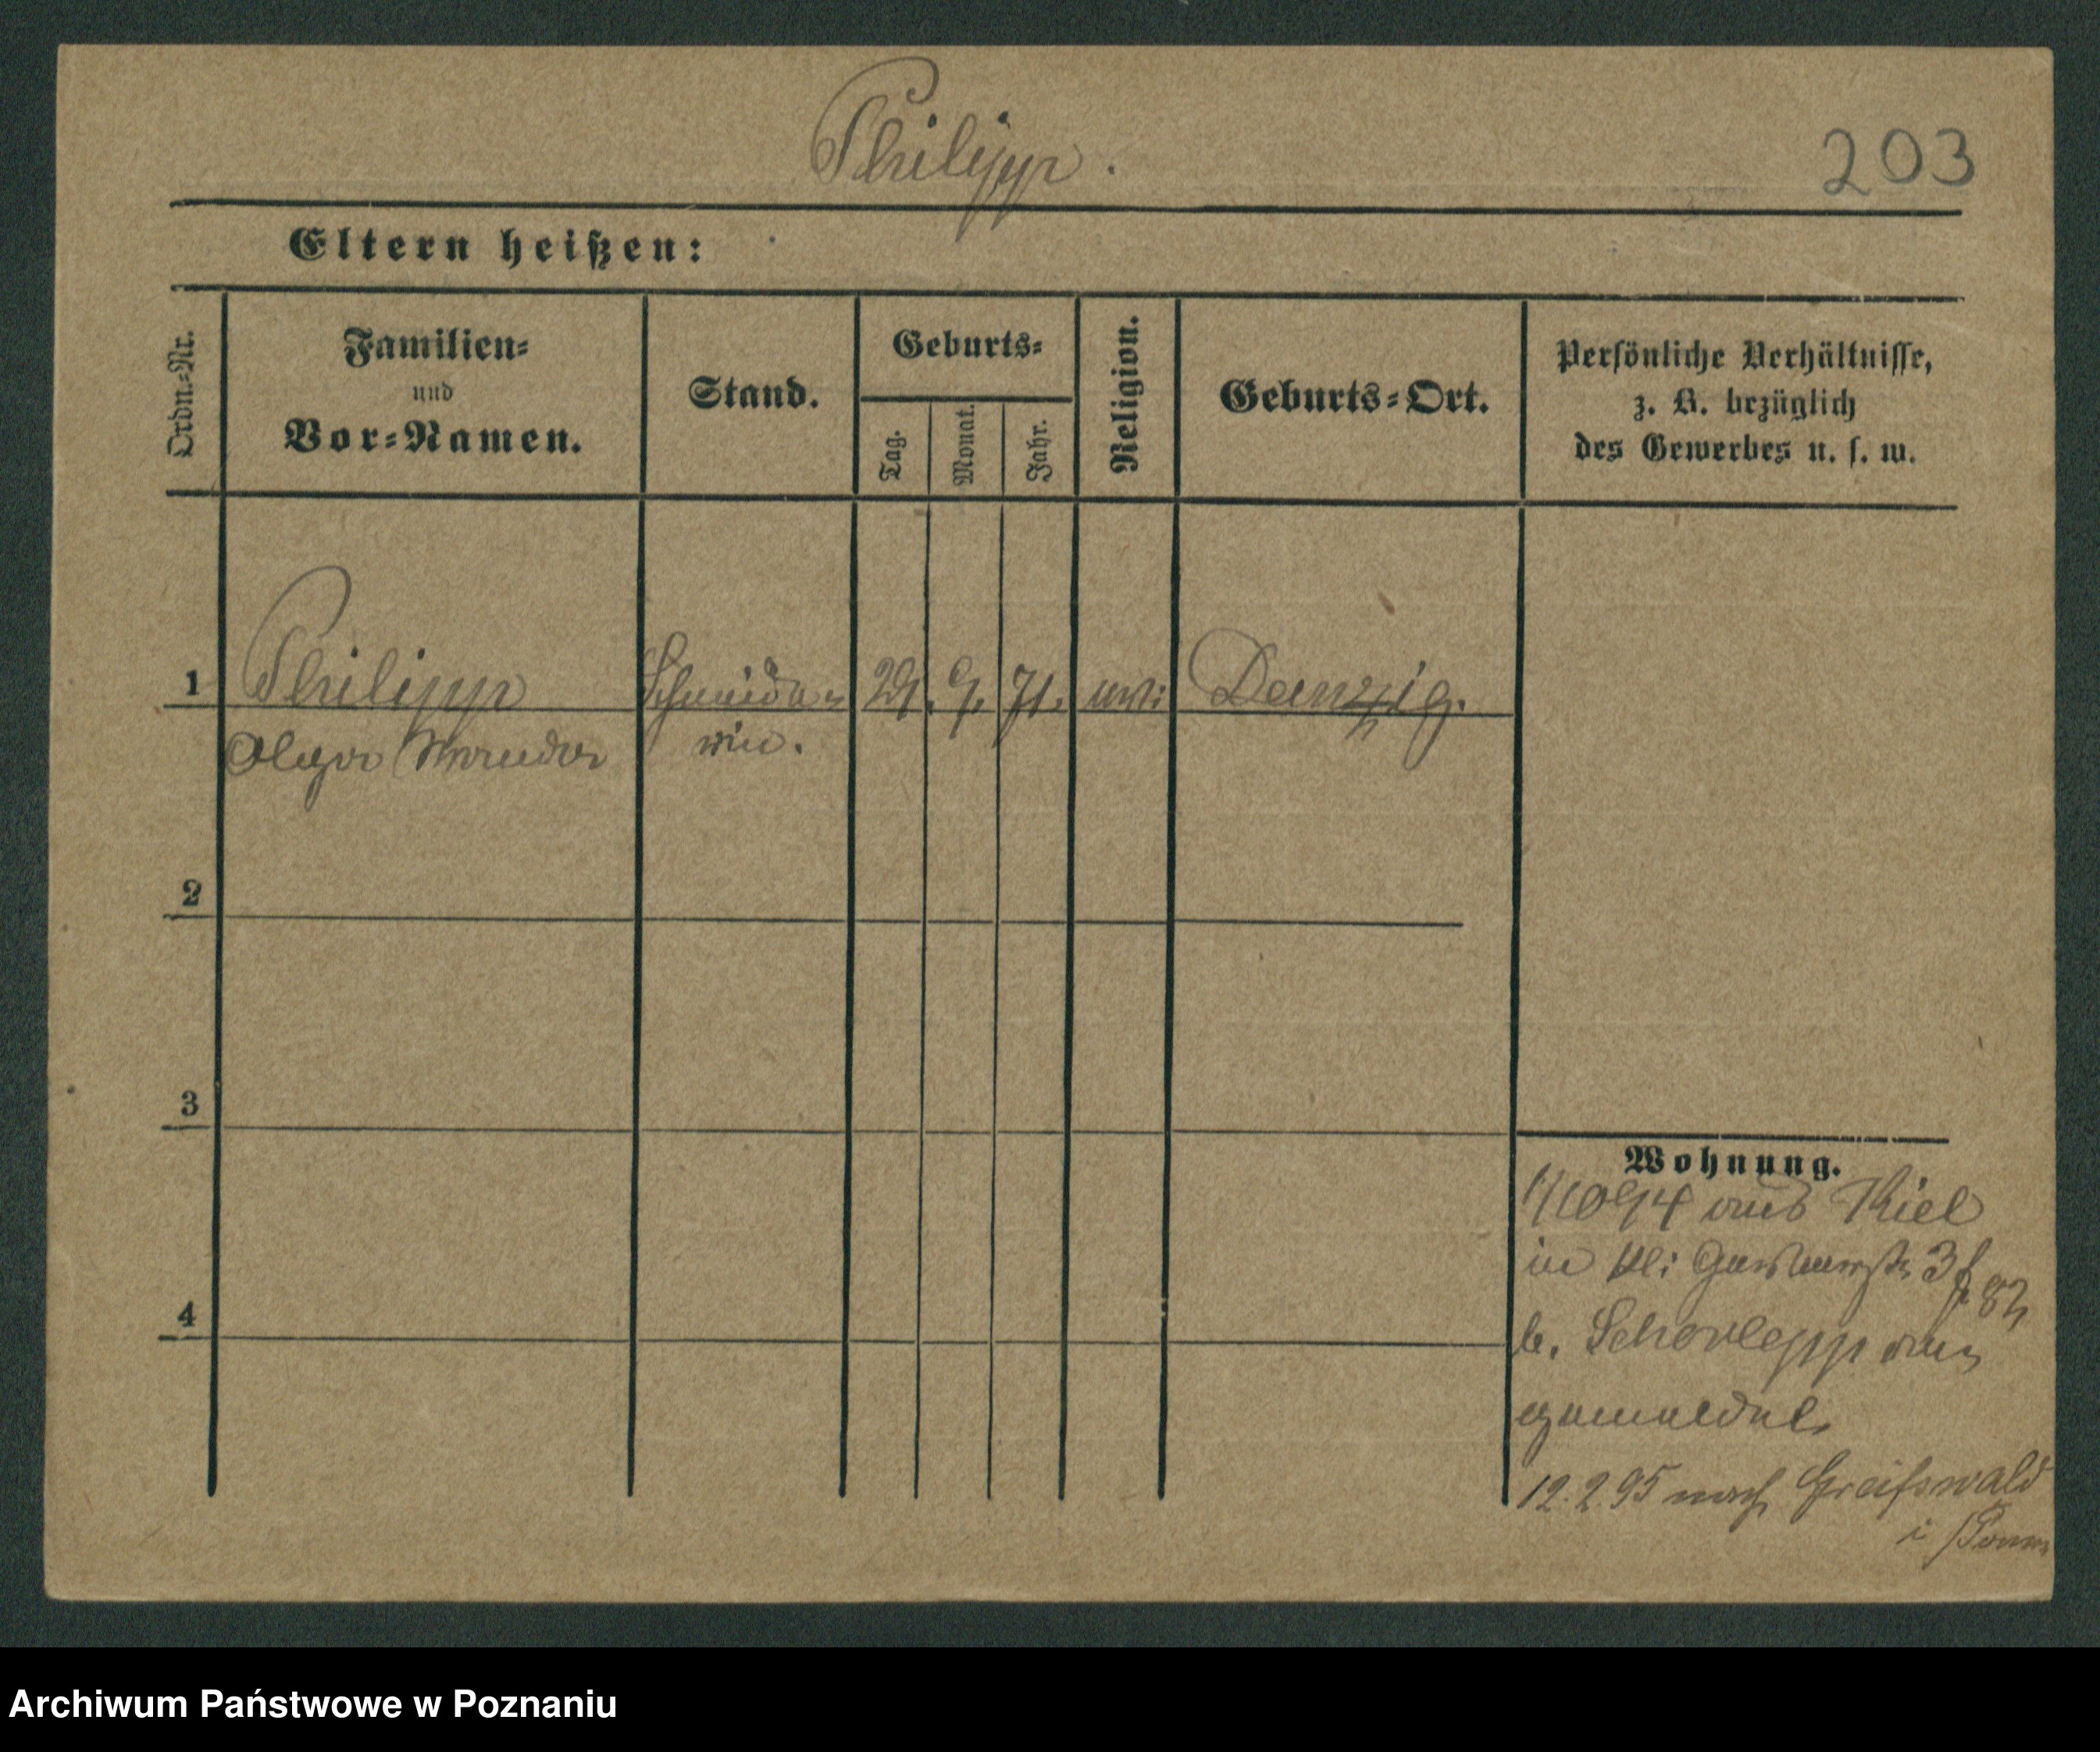 Philipp.
203
Eltern heißen:
Ordn.=Nr.
Familien=
und
Vor=Namen.
Stand.
Geburts=
Tag.
Monat.
Jahr.
Religion.
Geburts=Ort.
Persönliche Verhältnisse,
z. B. bezüglich
des Gewerbes u. s. w.
1
Philipp
Olga
Schneide=
rin.
29. 9. 71.
Danzig.
2
3
4
Wohnung.
1/10 94 aus Kiel
in Kl: 3
b. Schorlepp
gemeldet.
12.2.95 nach Greifswald
i/Pomm
Archiwum Państwowe w Poznaniu